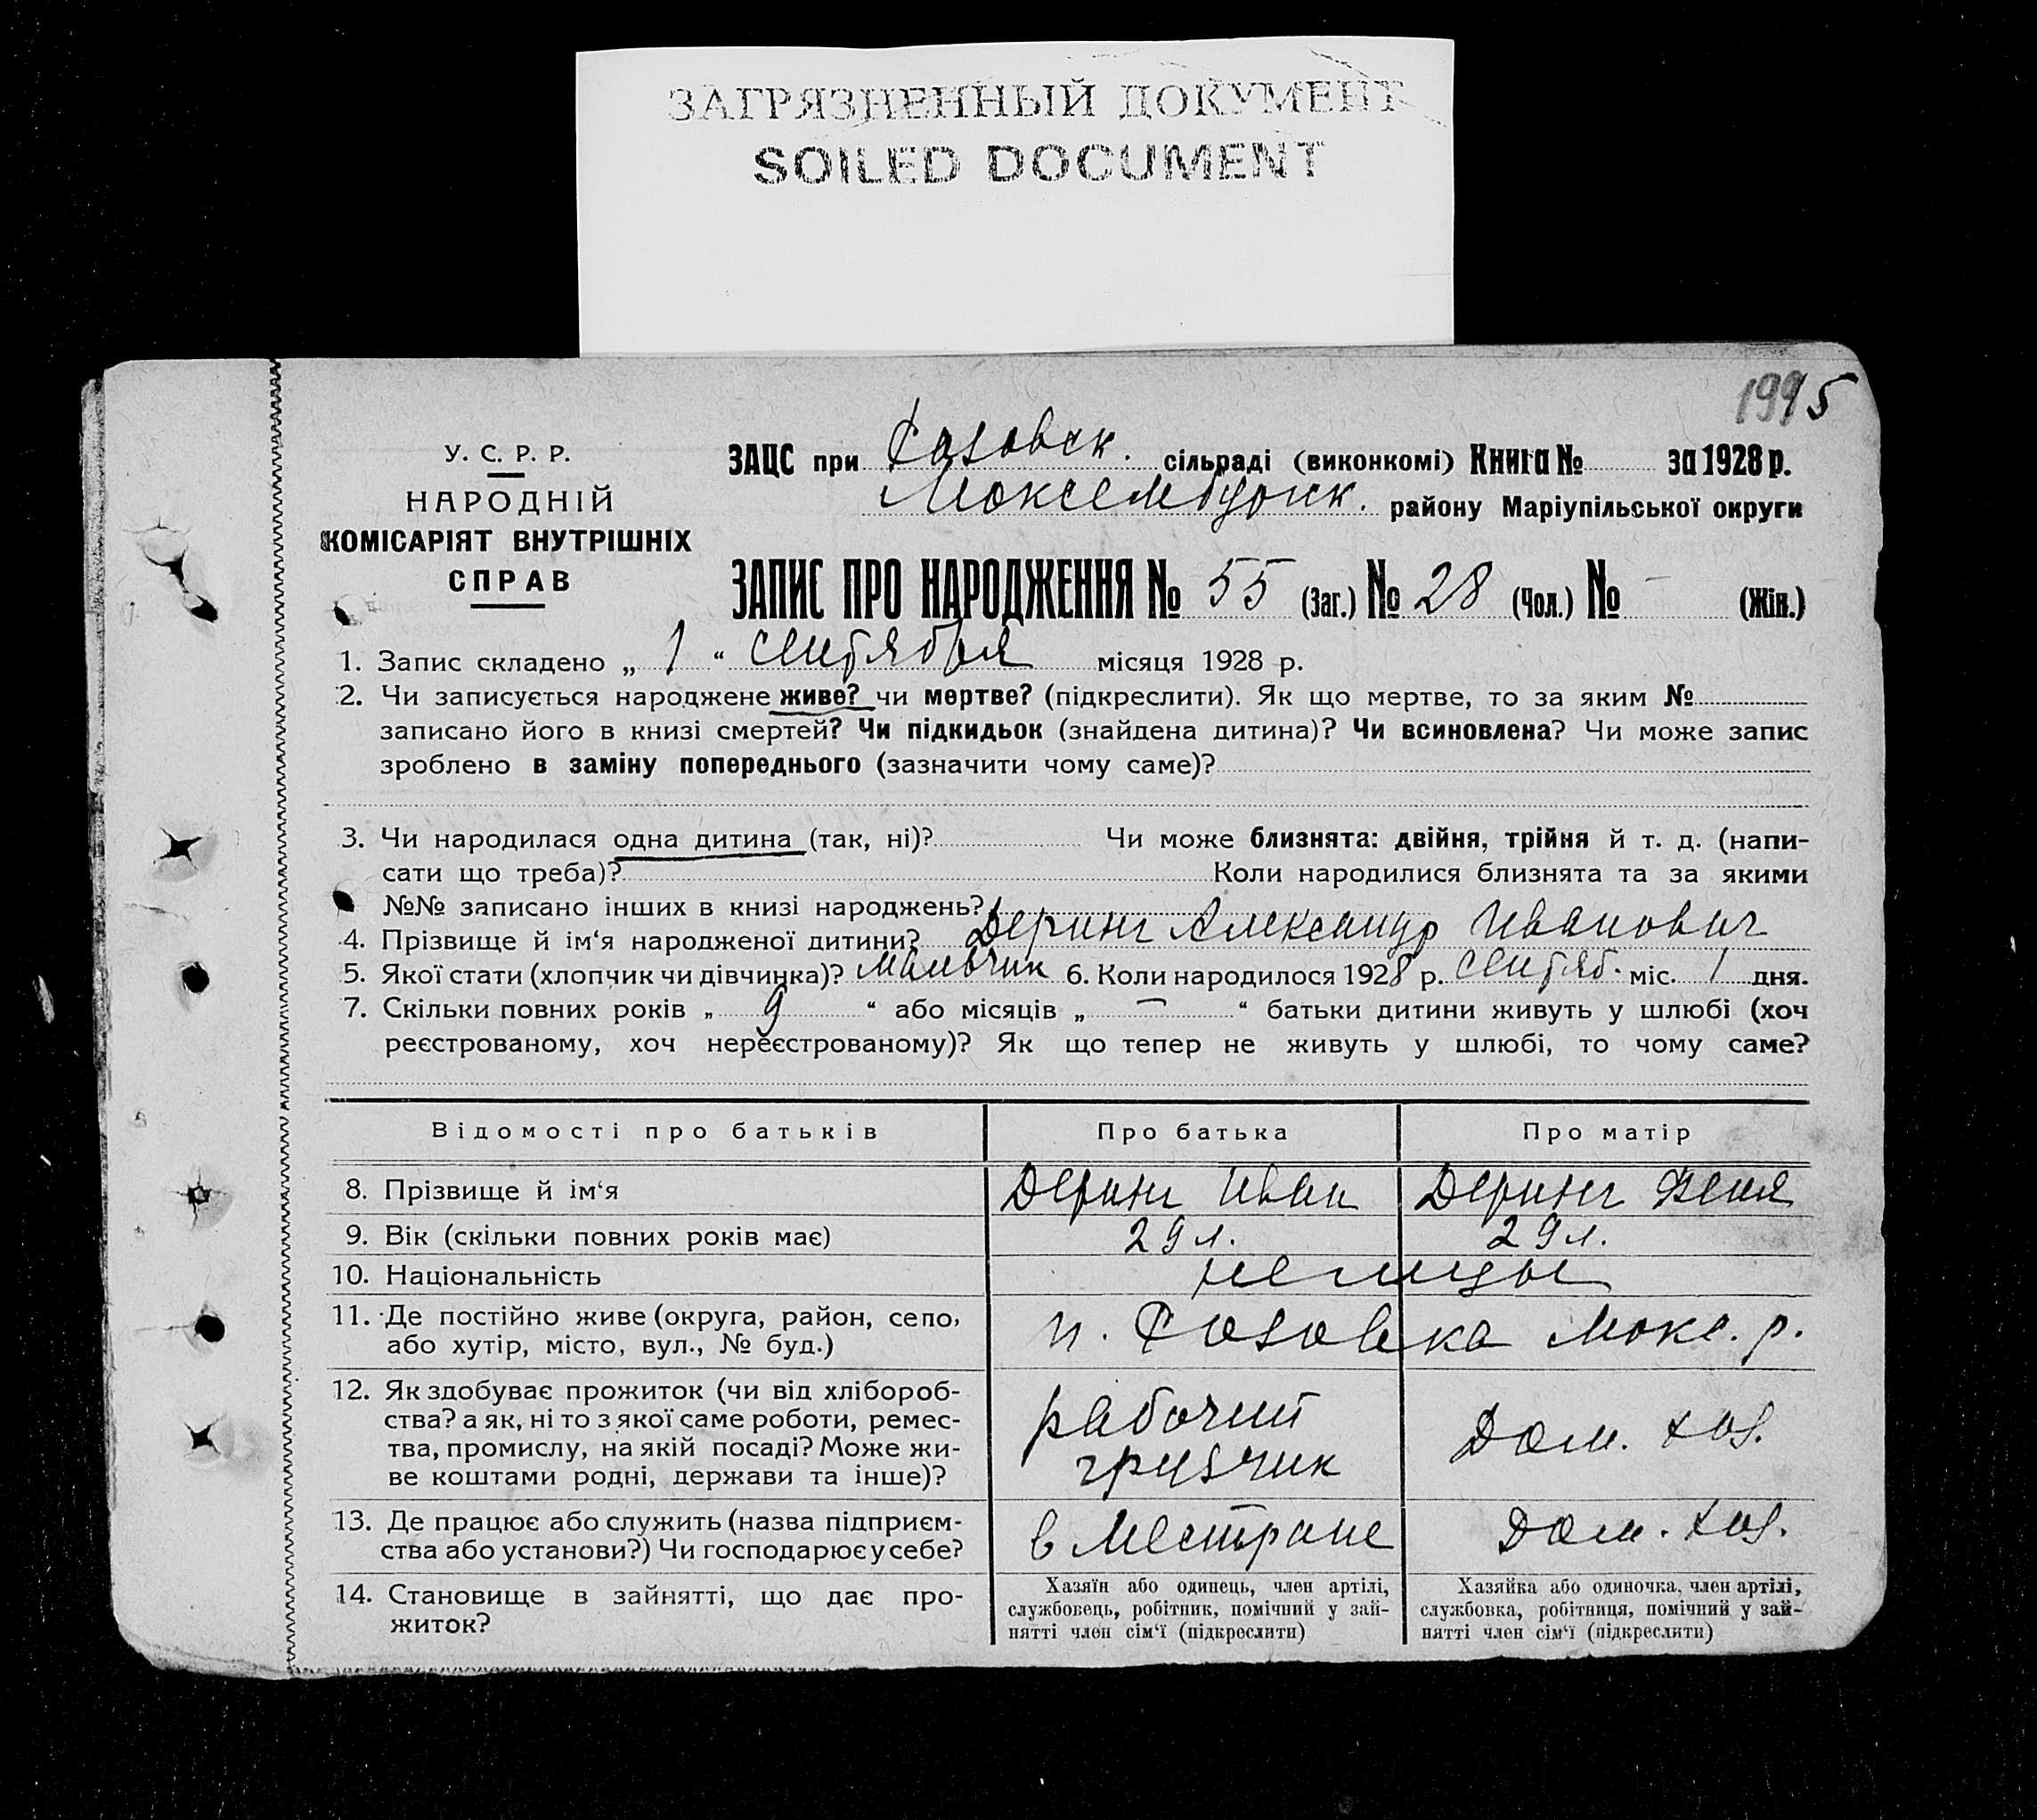 ЗАГРЯЗНЕННЫЙ ДОКУМЕНТ
SOILED DOCUMENT
1995
У. С. Р. Р.
НАРОДНІЙ
КОМІСАРІЯТ ВНУТРІШНІХ
СПРАВ
ЗАЦС при сільраді (виконкомі) Книга № за 1928 р.
району Маріупільської округи
ЗАПИС ПРО НАРОДЖЕННЯ № 55 (Заг.) № 28 (Чол.) № - (Жін.)
1. Запис складено „ 1 “ сентября місяця 1928 р.
2. Чи записується народжене живе? чи мертве? (підкреслити). Як що мертве, то за яким №
записано його в книзі смертей? Чи підкидьок (знайдена дитина)? Чи всиновлена? Чи може запис
зроблено в заміну попереднього (зазначити чому саме)?
3. Чи народилася одна дитина (так, ні)? Чи може близнята: двійня, трійня й т. д. (напи-
сати що треба)? Коли народилися близнята та за якими
№№ записано інших в книзі народжень?
4. Прізвище й ім‘я народженої дитини? Деринг Александр Иванович
5. Якої стати (хлопчик чи дівчинка)? Мальчик 6. Коли народилося 1928 р. Сентяб. міс. 1 дня.
7. Скільки повних років „ 9 “ або місяців „ — “ батьки дитини живуть у шлюбі (хоч
реєстрованому, хоч нереєстрованому)? Як що тепер не живуть у шлюбі, то чому саме?
Відомості про батьків Про батька Про матір
8. Прізвище й ім‘я Деринг Иван Деринг
9. Вік (скільки повних років має) 29 л. 29 л.
10. Національність немцы
11. Де постійно живе (округа, район, село,
або хутір, місто, вул., № буд.) п. Макс. р.
12. Як здобуває прожиток (чи від хлібороб-
ства? а як, ні то з якої саме роботи, ремес-
тва, промислу, на якій посаді? Може жи-
ве коштами родні, держави та інше)? рабочий
грузчик Дом. хоз.
13. Де працює або служить (назва підприєм-
ства або установи?) Чи господарює у себе? в Дом. хоз.
14. Становище в зайнятті, що дає про-
житок?
Хазяїн або одинець, член артілі,
службовець, робітник, помічний у зай-
нятті член сім‘ї (підкреслити)
Хазяйка або одиночка, член артілі,
службовка, робітниця, помічний у зай-
нятті член сім‘ї (підкреслити)